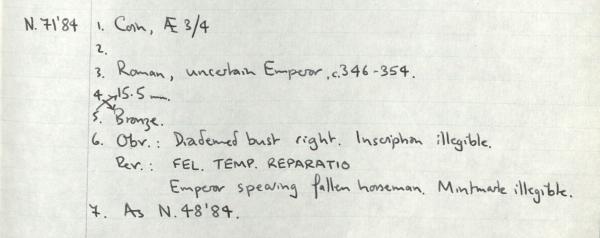 N.71'84 1. Coin, Æ 3/4
2.
3. Roman, uncertain Emperor, c.346-354.
4. 15.5 mm.
5. Bronze.
6. Obv.: Diademed bust right. Inscription illegible.
Rev.: FEL. TEMP. REPARATIO
Emperor spearing fallen horseman. Mintmark illegible.
7. As N.48'84.